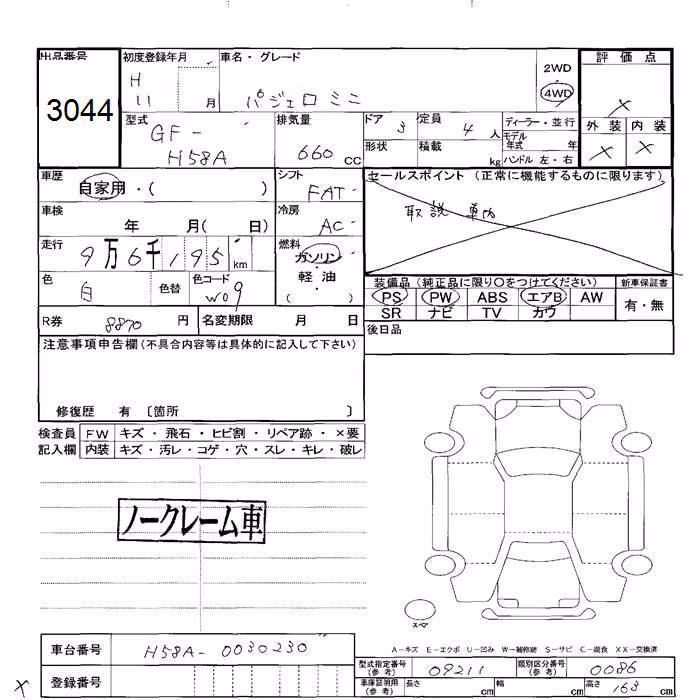 出品番号
3044
初度登録年月
H
11 月
車名・グレード
パジェロ ミニ
2WD
4WD
評価点
×
外装 内装
× ×
型式
GF-
H58A
排気量
660 cc
ドア 3
定員 4 人
形状
積載 kg
ディーラー・並行
モデル年式 年
ハンドル 左・右
車歴
自家用・( )
シフト
FAT
セールスポイント (正常に機能するものに限ります)
取説 車内
車検
年 月( 日)
冷房
AC
走行
9万6千195 km
燃料
ガソリン
軽・油
( )
色
白
色替
色コード
W09
装備品 (純正品に限り〇をつけてください)
新車保証書
PS PW ABS エアB AW
SR ナビ TV カワ
有・無
R券 8870 円
名変期限 月 日
後日品
注意事項申告欄(不具合内容等は具体的に記入して下さい)
修復歴 有 〔箇所 〕
検査員
記入欄
FW キズ・飛石・ヒビ割・リペア跡・×要
内装 キズ・汚レ・コゲ・穴・スレ・キレ・破レ
ノークレーム車
スペア
A-キズ E-エクボ U-凹み W-補修跡 S-サビ C-腐食 XX-交換済
車台番号 H58A-0030230
登録番号
型式指定番号(参考) 09211
類別区分番号(参考) 0086
車庫証明用(参考) 長さ cm 幅 cm 高さ 163 cm
×